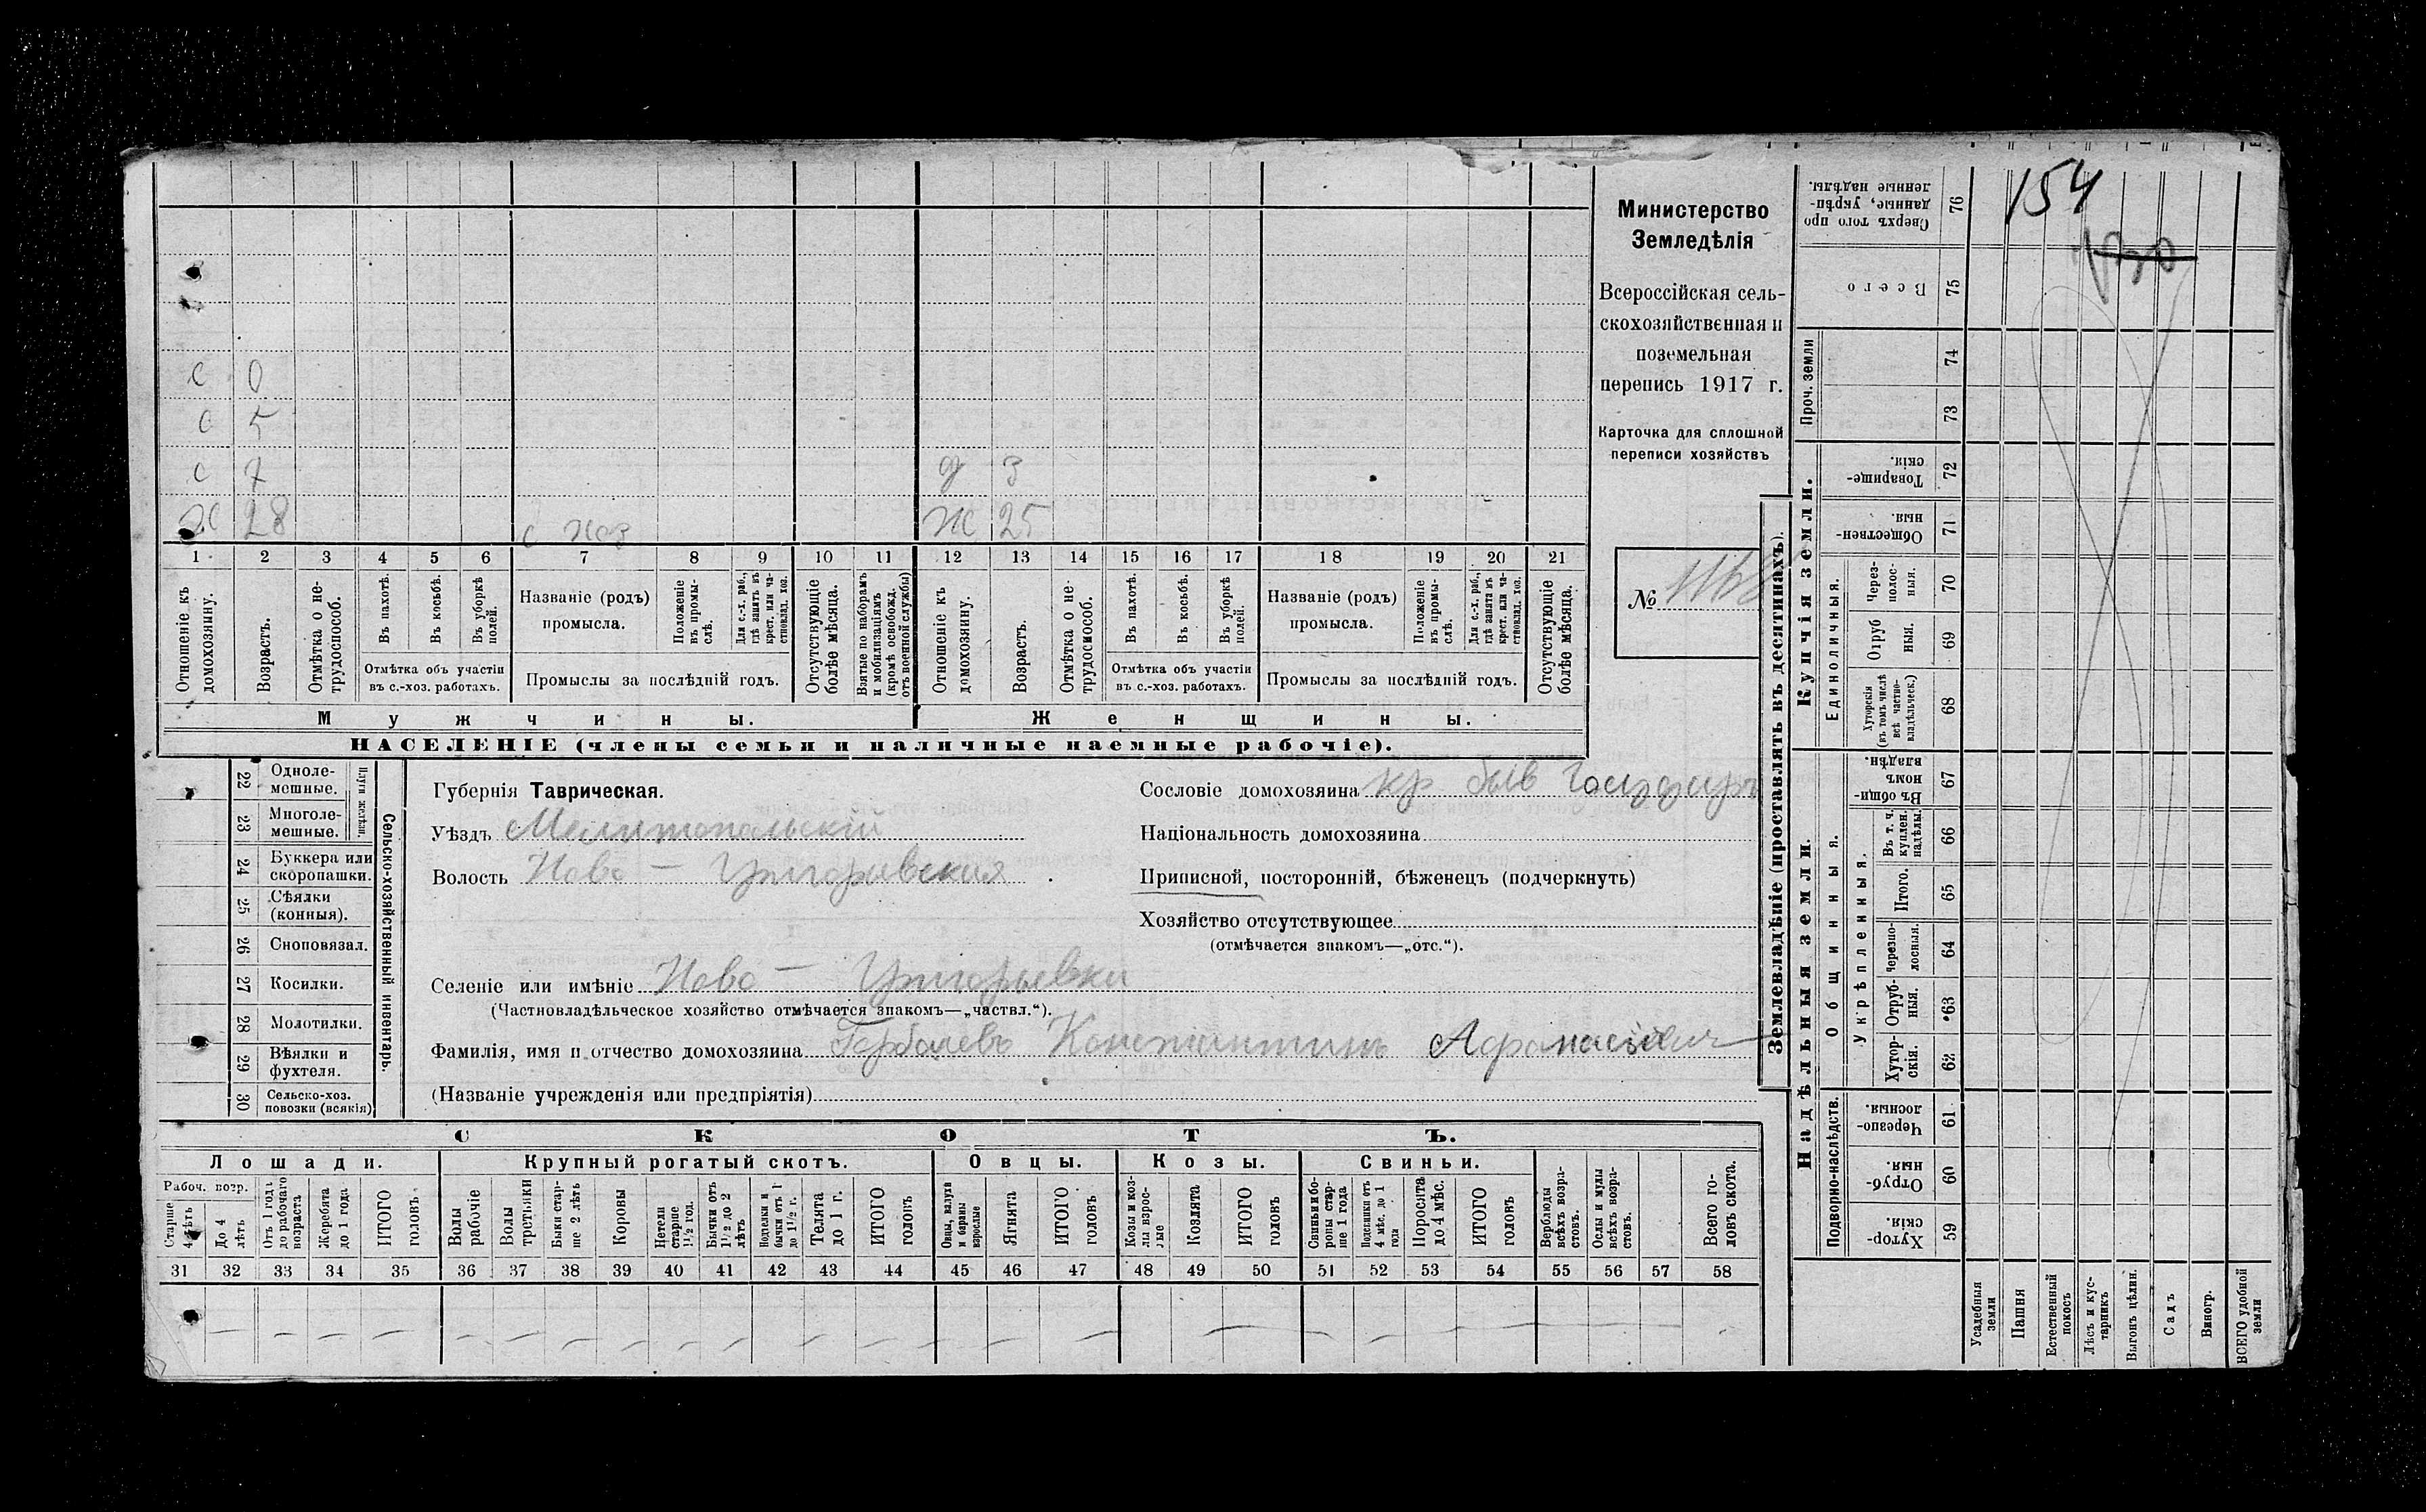 154
Министерство
Земледѣлія
Всероссійская сель-
скохозяйственная и
поземельная
перепись 1917 г.
Карточка для сплошной
переписи хозяйствъ
№
с 0
с 5
с 7 д 3
х 28 с хоз ж 25
1 2 3 4 5 6 7 8 9 10 11 12 13 14 15 16 17 18 19 20 21
Отношеніе къ домохозяину.
Возрастъ.
Отмѣтка о не-трудоспособ.
Въ пахотѣ.
Въ косьбѣ.
Въ уборкѣ полей.
Отмѣтка объ участіи
въ с.-хоз. работахъ.
Названіе (родъ)
промысла.
Положеніе въ промы-слѣ.
Для с.-х. раб., гдѣ занятъ въ крест. или ча-стновлад. хоз.
Промыслы за послѣдній годъ.
Отсутствующіе болѣе мѣсяца.
Взятые по наборамъ и мобилизаціямъ (кромѣ освобожд. отъ военной службы)
Отношеніе къ домохозяину.
Возрастъ.
Отмѣтка о не-трудоспособ.
Въ пахотѣ.
Въ косьбѣ.
Въ уборкѣ полей.
Отмѣтка объ участіи
въ с.-хоз. работахъ.
Названіе (родъ)
промысла.
Положеніе въ промы-слѣ.
Для с.-х. раб., гдѣ занята въ крест. или ча-стновлад. хоз.
Промыслы за послѣдній годъ.
Отсутствующіе болѣе мѣсяца.
Мужчины. Женщины.
НАСЕЛЕНІЕ (члены семьи и наличные наемные рабочіе).
22 Одноле-мешные.
23 Многоле-мешные.
Плуги желѣзн.
24 Буккера или скоропашки.
25 Сѣялки (конныя).
26 Сноповязал.
27 Косилки.
28 Молотилки.
29 Вѣялки и фухтеля.
30 Сельско-хоз. повозки (всякія)
Сельско-хозяйственный инвентарь.
Губернія Таврическая.
Уѣздъ Мелитопольскій
Волость Ново-Григорьевская
Сословіе домохозяина кр быв Государ
Національность домохозяина
Приписной, посторонній, бѣженецъ (подчеркнуть)
Хозяйство отсутствующее
(отмѣчается знакомъ—„отс.“).
Селеніе или имѣніе Ново-Григорьевка
(Частновладѣльческое хозяйство отмѣчается знакомъ—„частвл.“).
Фамилія, имя и отчество домохозяина Горбачевъ Константинъ Афанасіевич
(Названіе учрежденія или предпріятія)
СКОТЪ.
Лошади. Крупный рогатый скотъ. Овцы. Козы. Свиньи.
Рабоч. возр.
Старше 4 лѣтъ
До 4 лѣтъ
Отъ 1 года до рабочаго возраста
Жеребята до 1 года
ИТОГО головъ
Волы рабочіе
Волы третьяки
Быки стар-ше 2 лѣтъ
Коровы
Нетели старше 1½ год.
Бычки отъ 1½ до 2 лѣтъ
Нетелки и бычки отъ 1 до 1½ г.
Телята до 1 г.
ИТОГО головъ
Овцы, валухи и бараны взрослые
Ягнята
ИТОГО головъ
Козы и коз-лы взрос-лые
Козлята
ИТОГО головъ
Свиньи и бо-ровы стар-ше 1 года
Подсвинки отъ 4 мѣс. до 1 года
Поросята до 4 мѣс.
ИТОГО головъ
Верблюды всѣхъ возра-стовъ.
Ослы и мулы всѣхъ возра-стовъ.
Всего го-ловъ скота.
31 32 33 34 35 36 37 38 39 40 41 42 43 44 45 46 47 48 49 50 51 52 53 54 55 56 57 58
Землевладѣніе (проставлять въ десятинахъ).
Купчія земли.
Надѣльныя земли.
Сверхъ того про данные, укрѣп-ленные надѣлы. 76
Всего 75
Проч. земли 74 73
Товарище-скія. 72
Обществен-ныя. 71
Единоличныя.
Через-полос-ныя. 70
Отруб ныя. 69
Хуторскія (въ томъ числѣ всѣ частно-владѣльческ.) 68
Общинныя.
Въ общи-номъ владѣн. 67
Укрѣпленныя.
Въ т. ч. куплен. надѣлы. 66
Итого. 65
Черезпо-лосныя. 64
Отруб-ныя. 63
Хутор-скія. 62
Подворно-наслѣдств.
Черезпо-лосныя. 61
Отруб-ныя. 60
Хутор-скія. 59
Усадебныя земли
Пашня
Естественный покосъ
Лѣсъ и кус-тарникъ
Выгонъ цѣлин.
Садъ
Виногр.
ВСЕГО удобной земли